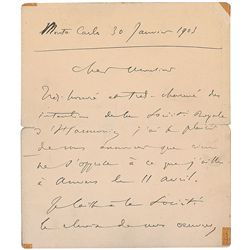 Monte Carlo 30 Janvier 1903
Cher Monsieur
Très honoré et très charmé des
intentions de la Société Royale
d'Harmonie j'ai le plaisir
de vous annoncer que rien
ne s'oppose à ce que j'aille
à Anvers le 11 avril.
Je laisse à la Société
le choix de mes oeuvres